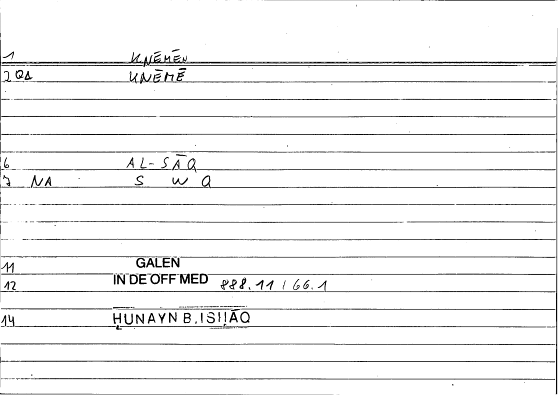 1 KNĒMĒN
2 QΔ KNĒMĒ
6 AL-SĀQ
7 NA S W Q
11 GALEN
12 IN DE OFF MED 888.11 / 66.1
14 ḤUNAYN B. ISḤĀQ